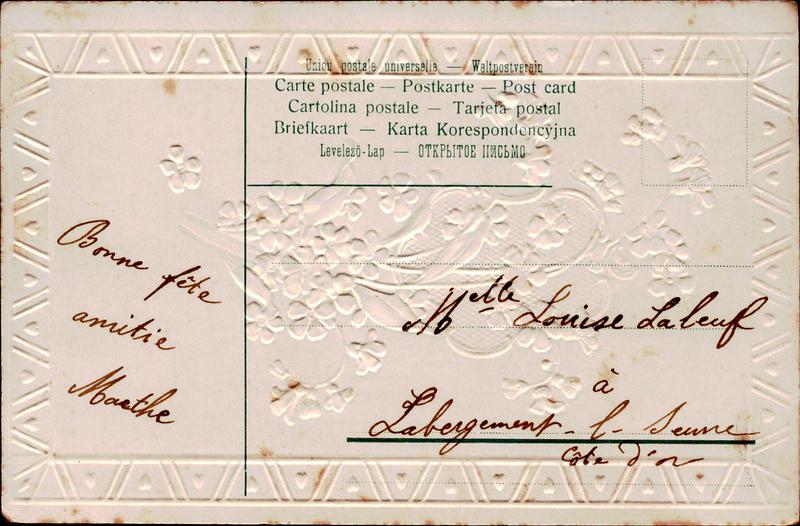 Union postale universelle — Weltpostverein
Carte postale — Postkarte — Post card
Cartolina postale — Tarjeta postal
Briefkaart — Karta Korespondencyjna
Levelező-Lap — ОТКРЫТОЕ ПИСЬМО
Bonne fête
amitié
Marthe
Melle Louise Labeuf
à
Labergement - l - Seurre
Côte d'or